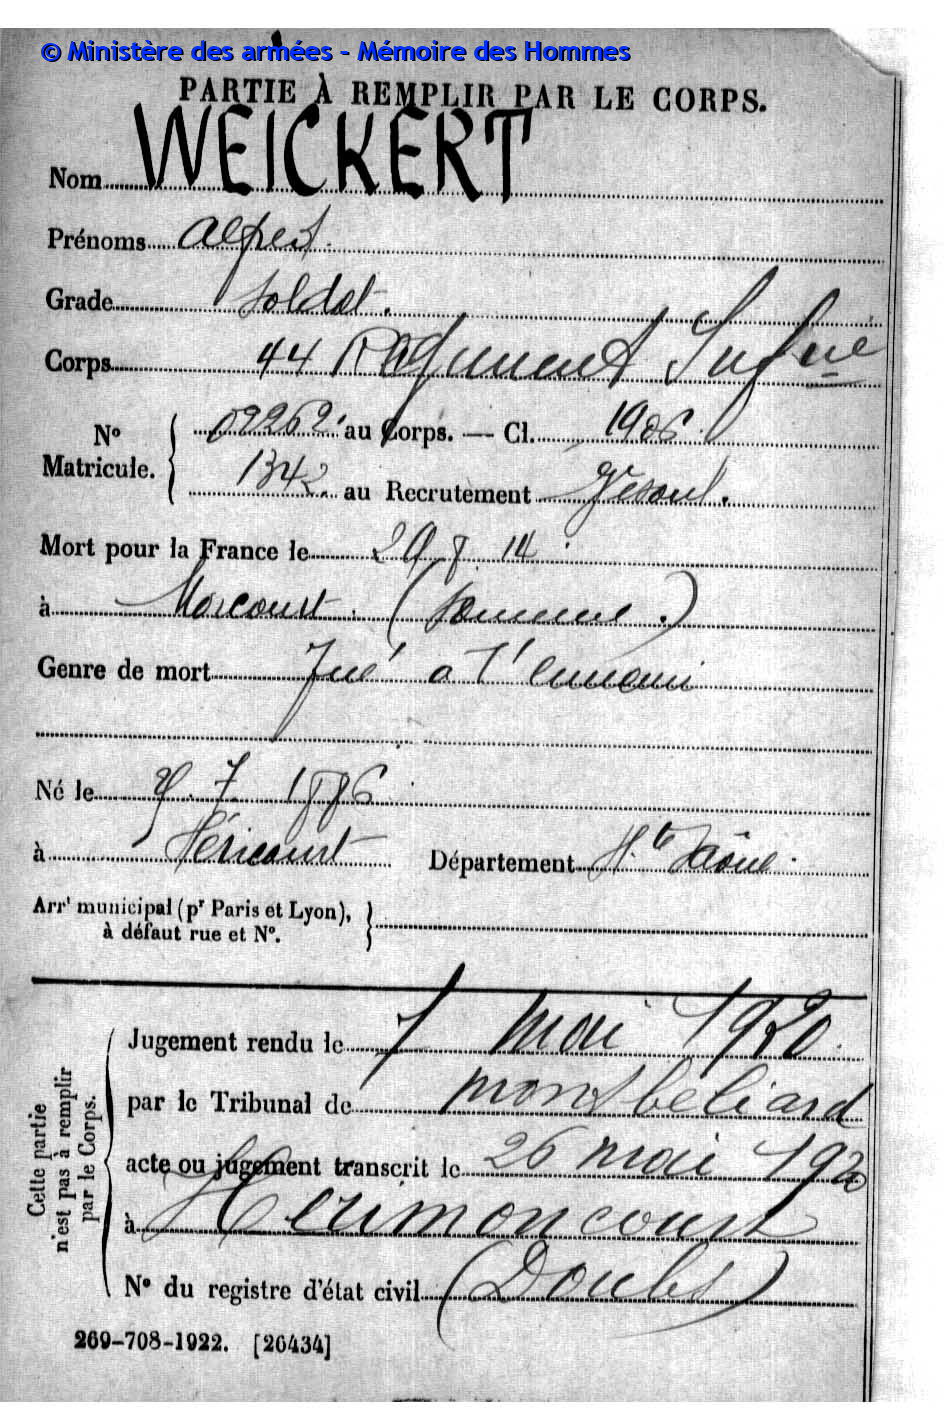 © Ministère des armées - Mémoire des Hommes
PARTIE À REMPLIR PAR LE CORPS.
Nom WEICKERT
Prénoms Alfred.
Grade Soldat.
Corps 44 Régiment Inf rie
N° Matricule. 09262 au Corps. — Cl. 1906
1342 au Recrutement Vésoul.
Mort pour la France le 29 8 14
à Morcourt. (Somme.)
Genre de mort Tué à l'ennemi
Né le 7 1886
à Héricourt Département Hte Saône.
Arrt municipal (pr Paris et Lyon),
à défaut rue et N°.
Cette partie
n'est pas à remplir
par le Corps.
Jugement rendu le 7 mai 1920.
par le Tribunal de Montbéliard
acte ou jugement transcrit le 26 mai 1920
à Hérimoncourt
N° du registre d'état civil (Doubs)
269-708-1922. [26434]